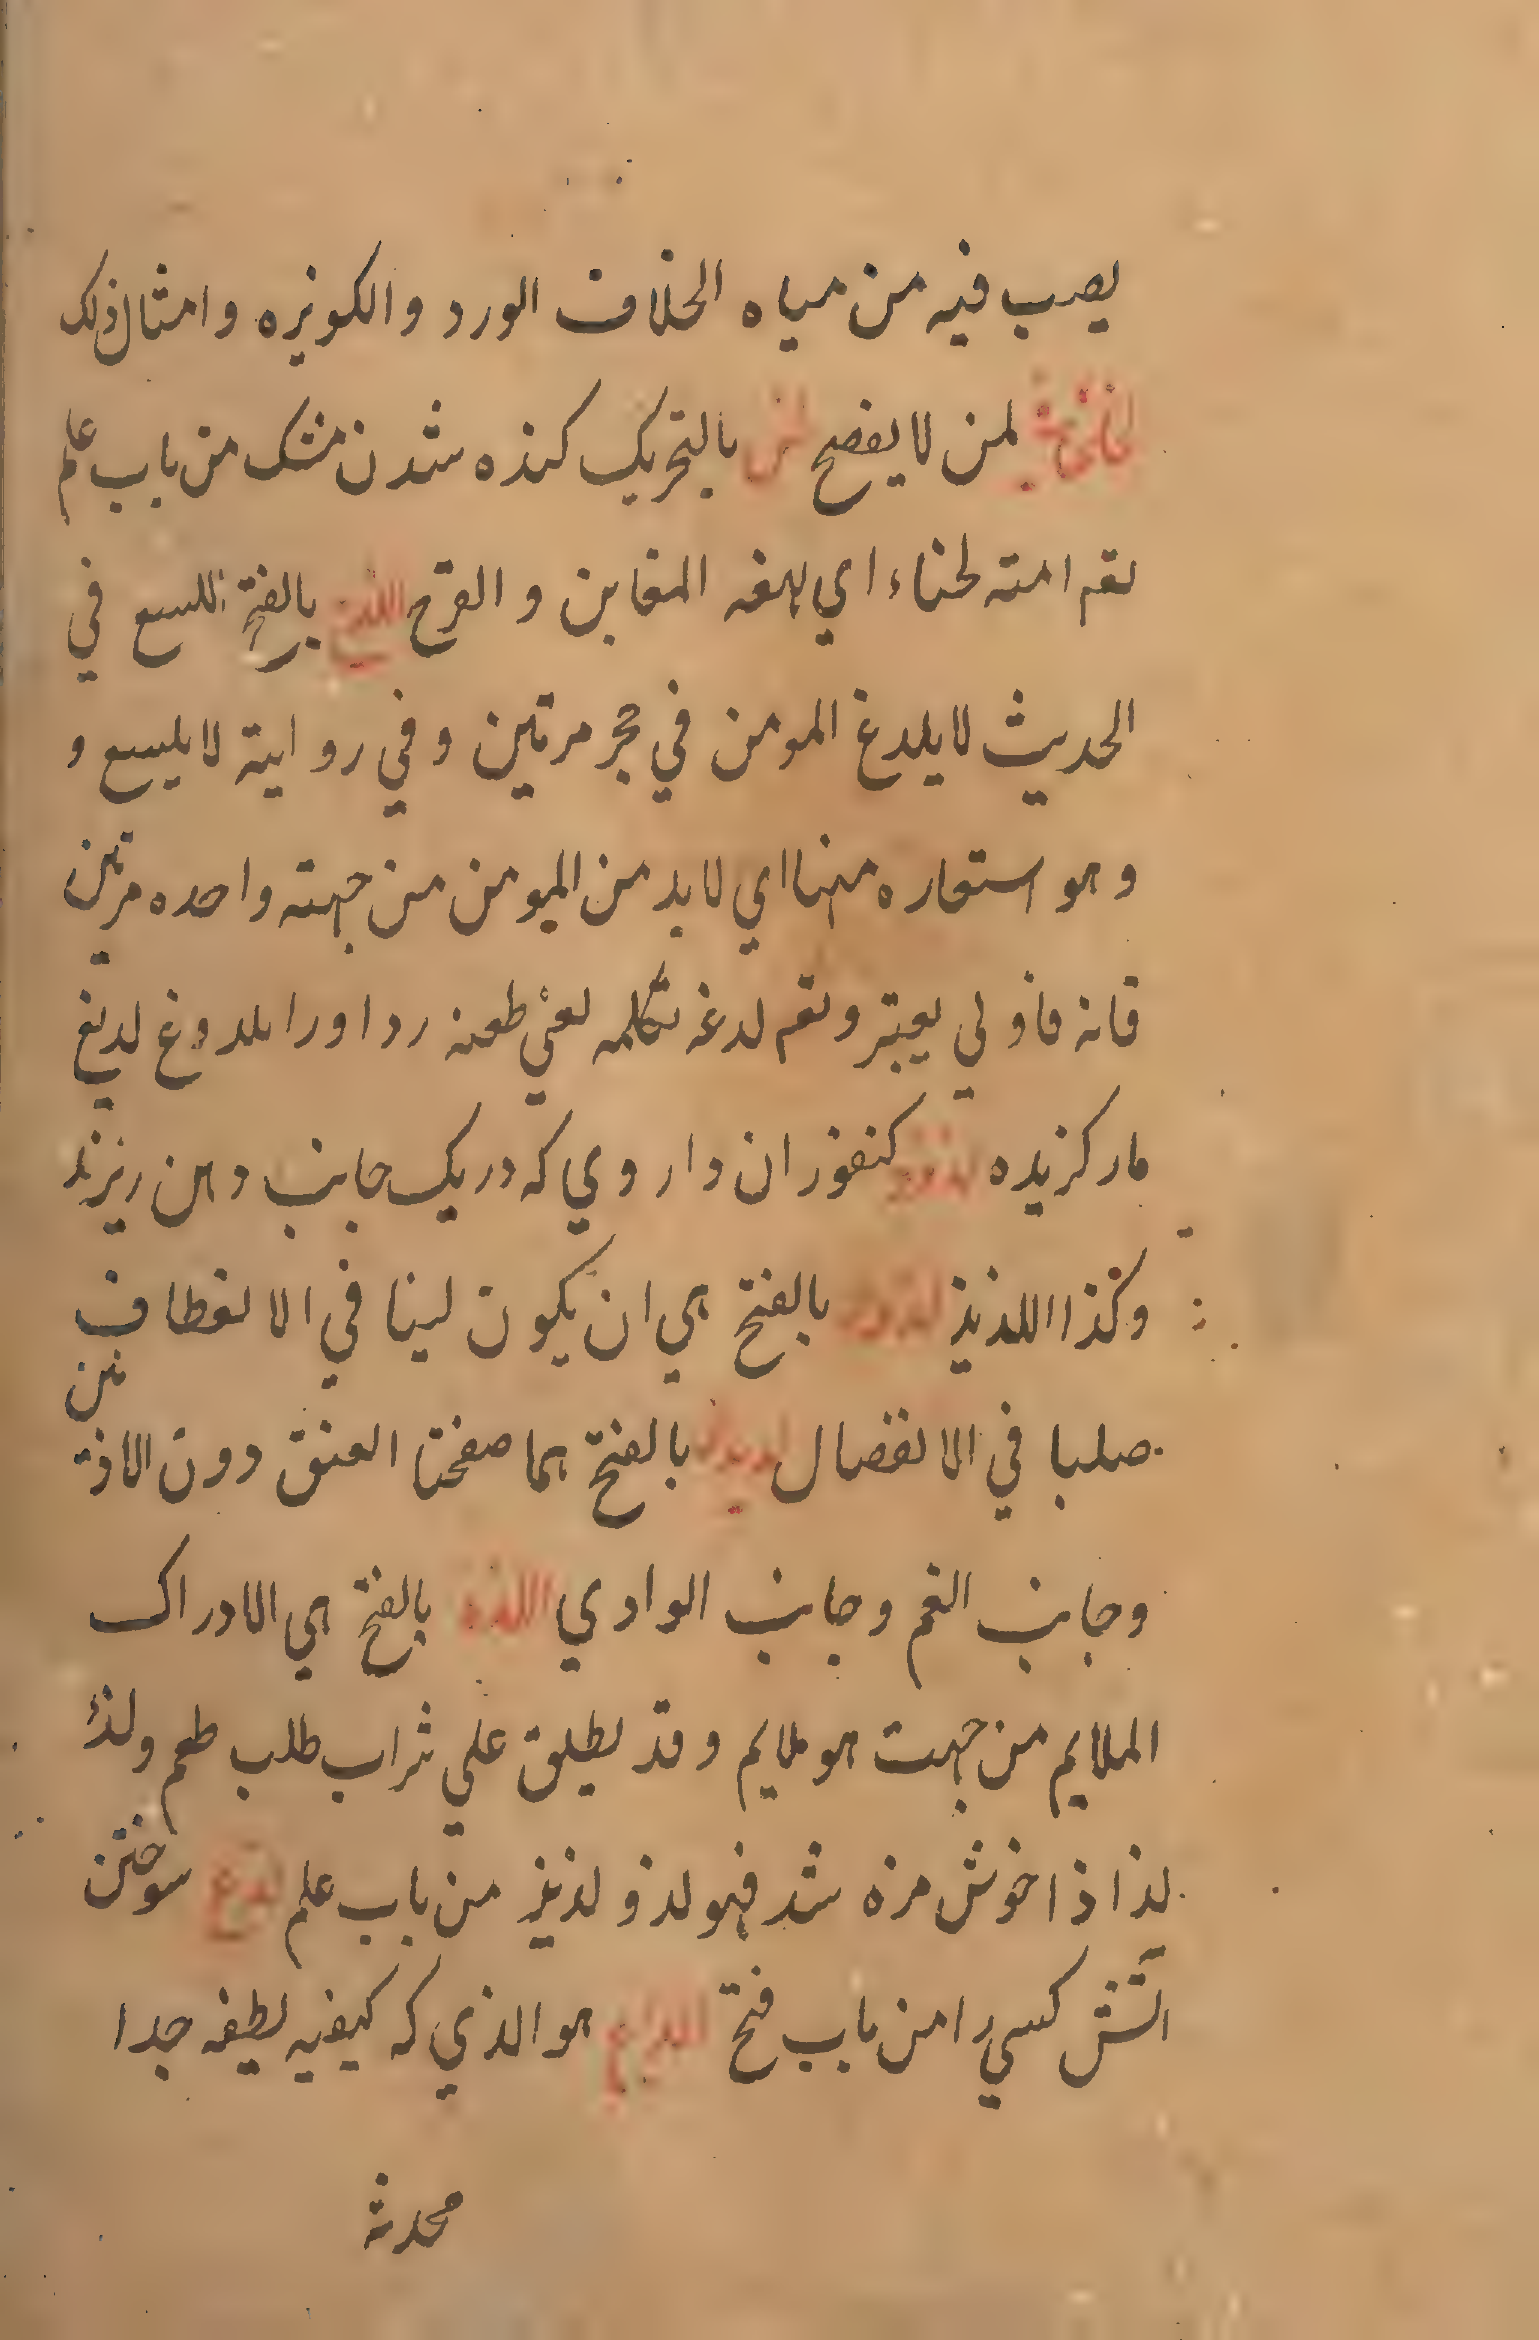 يصب فيه من مياه الخلاف الورد والكويزه وامثال ذلك
لمن لا يفصح لخن بالتحريك كنده شدن مشك من باب علم
يقم امته لخناء اي المغابن و القرح اللدغ بالفتح اللسع في
الحديث لا يلدغ المومن في حجر مرتين وفي رواية لا يلسع و
وهو استعاره منها اي لا بد من المومن من جهته واحده مرتين
فانه فاولي يعتبر ويقم لدغه بكلمه يعني طعنه رد اورا ملدوغ لديغ
مار كزيده لدود كنفوز ان داروي كه در يك جانب دهن ريزند
وكذا اللذيذ بالفتح هي ان يكون لينا في الانعطاف
صلبا في الانفصال لديدان بالفتح هما صفحتا العنق دون الاذنين
وجانب الفم وجانب الوادي اللذه بالفتح هي الادراك
الملايم من جهت هو ملايم وقد يطلق علي شراب طلب طعم ولذ
لذا ذا خوش مزه شد فهو لذ و لذيذ من باب علم لذع سوختن
اتش كسي را من باب فتح اللذاع هو الذي كه كيفيه لطيفه جدا
محدثة